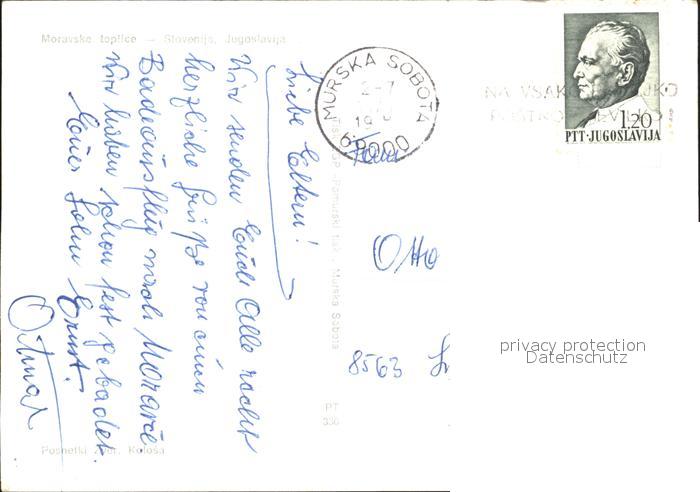 Moravske toplice — Slovenija, Jugoslavija
Liebe Eltern!
Wir senden Euch Alle recht
herzliche Grüße von einem
Badeausflug nach Moravče
Wir haben schon fest gebadet.
Euer Sohn Ernst.
Otmar
Posnetki Kološa
Pomurski tisk - Murska Sobota
PT
330
MURSKA SOBOTA
2-7
19
69000
NA VSAK
POŠTNO
1.20
PTT·JUGOSLAVIJA
Fam
Otto
8563
privacy protection
Datenschutz